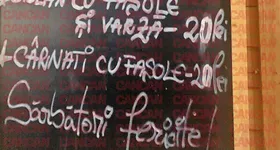 CU FASOLE
ȘI VARZĂ - 20 lei
- CÂRNAȚI CU FASOLE - 20 lei
Sărbători fericite!